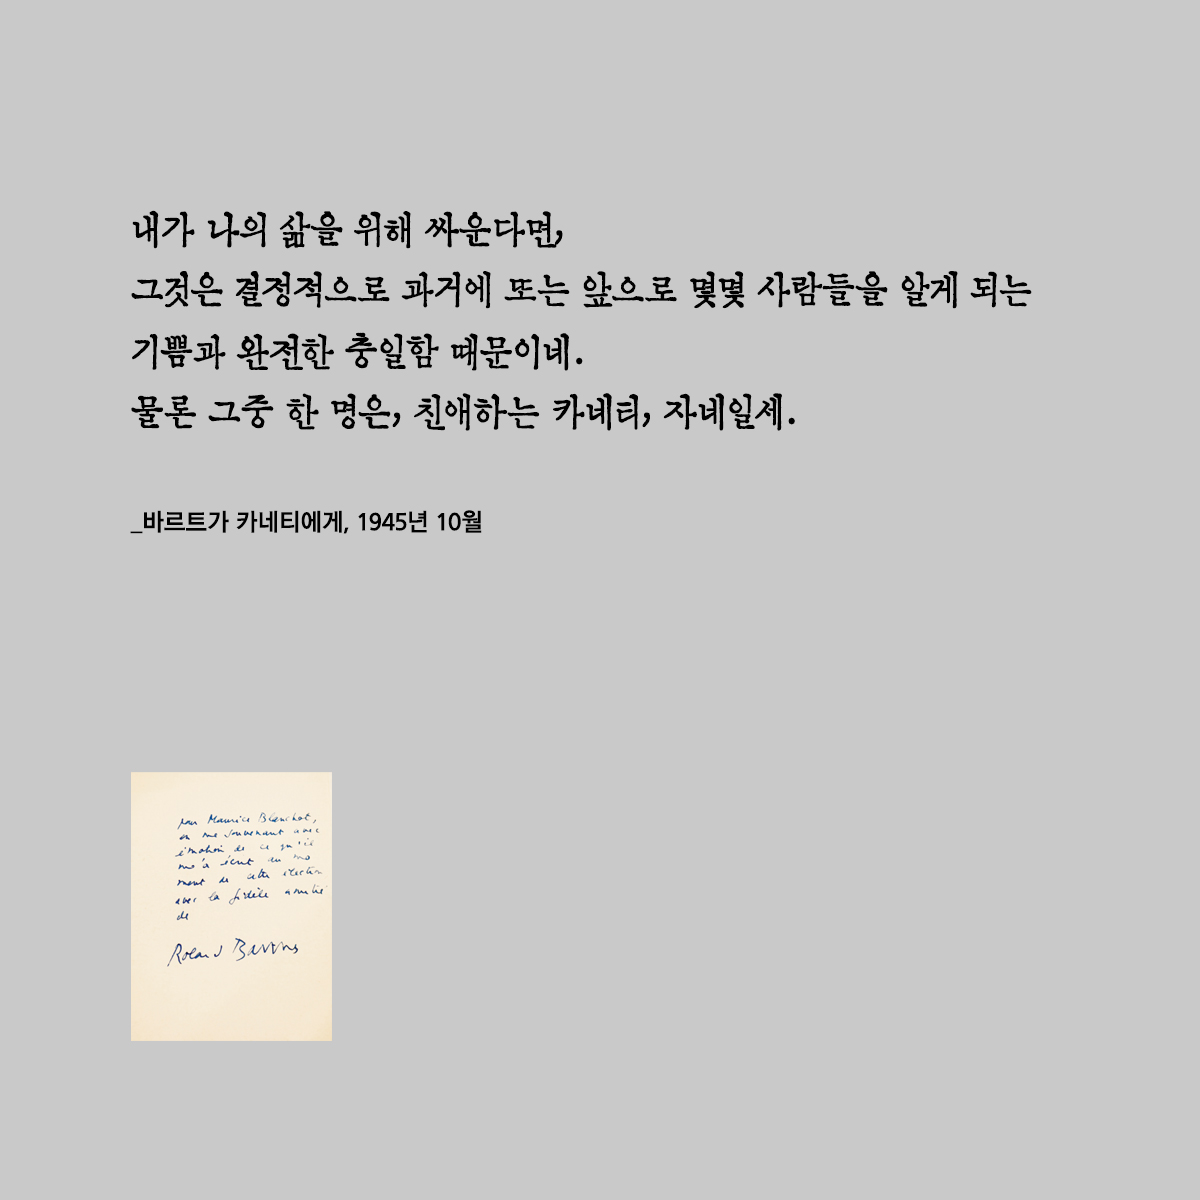 내가 나의 삶을 위해 싸운다면,
그것은 결정적으로 과거에 또는 앞으로 몇몇 사람들을 알게 되는
기쁨과 완전한 충일함 때문이네.
물론 그중 한 명은, 친애하는 카네티, 자네일세.
_바르트가 카네티에게, 1945년 10월
pour Maurice Blanchot,
en me souvenant avec
émotion de ce qu'il
m'a écrit au mo
ment de cette élection
avec la fidèle amitié
de
Roland Barthes